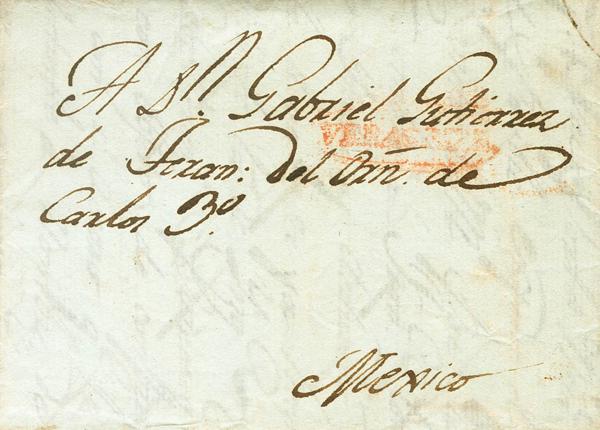 A Dn. Gabriel Gutierrez
de Teran: Del Orñ. de
Carlos 3º.
Mexico